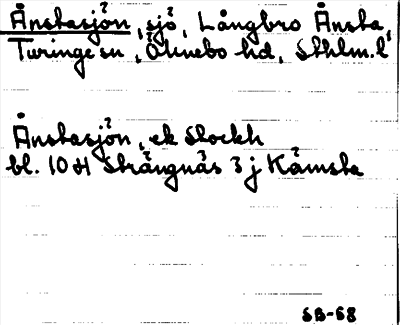 Ånstasjön, sjö, Långbro Ånsta,
Turinge sn, Öknebo hd, Sthlm. l
Ånstasjön, ek Stockh
bl. 10 H Strängnäs 3 j Kåmsta
SB-68